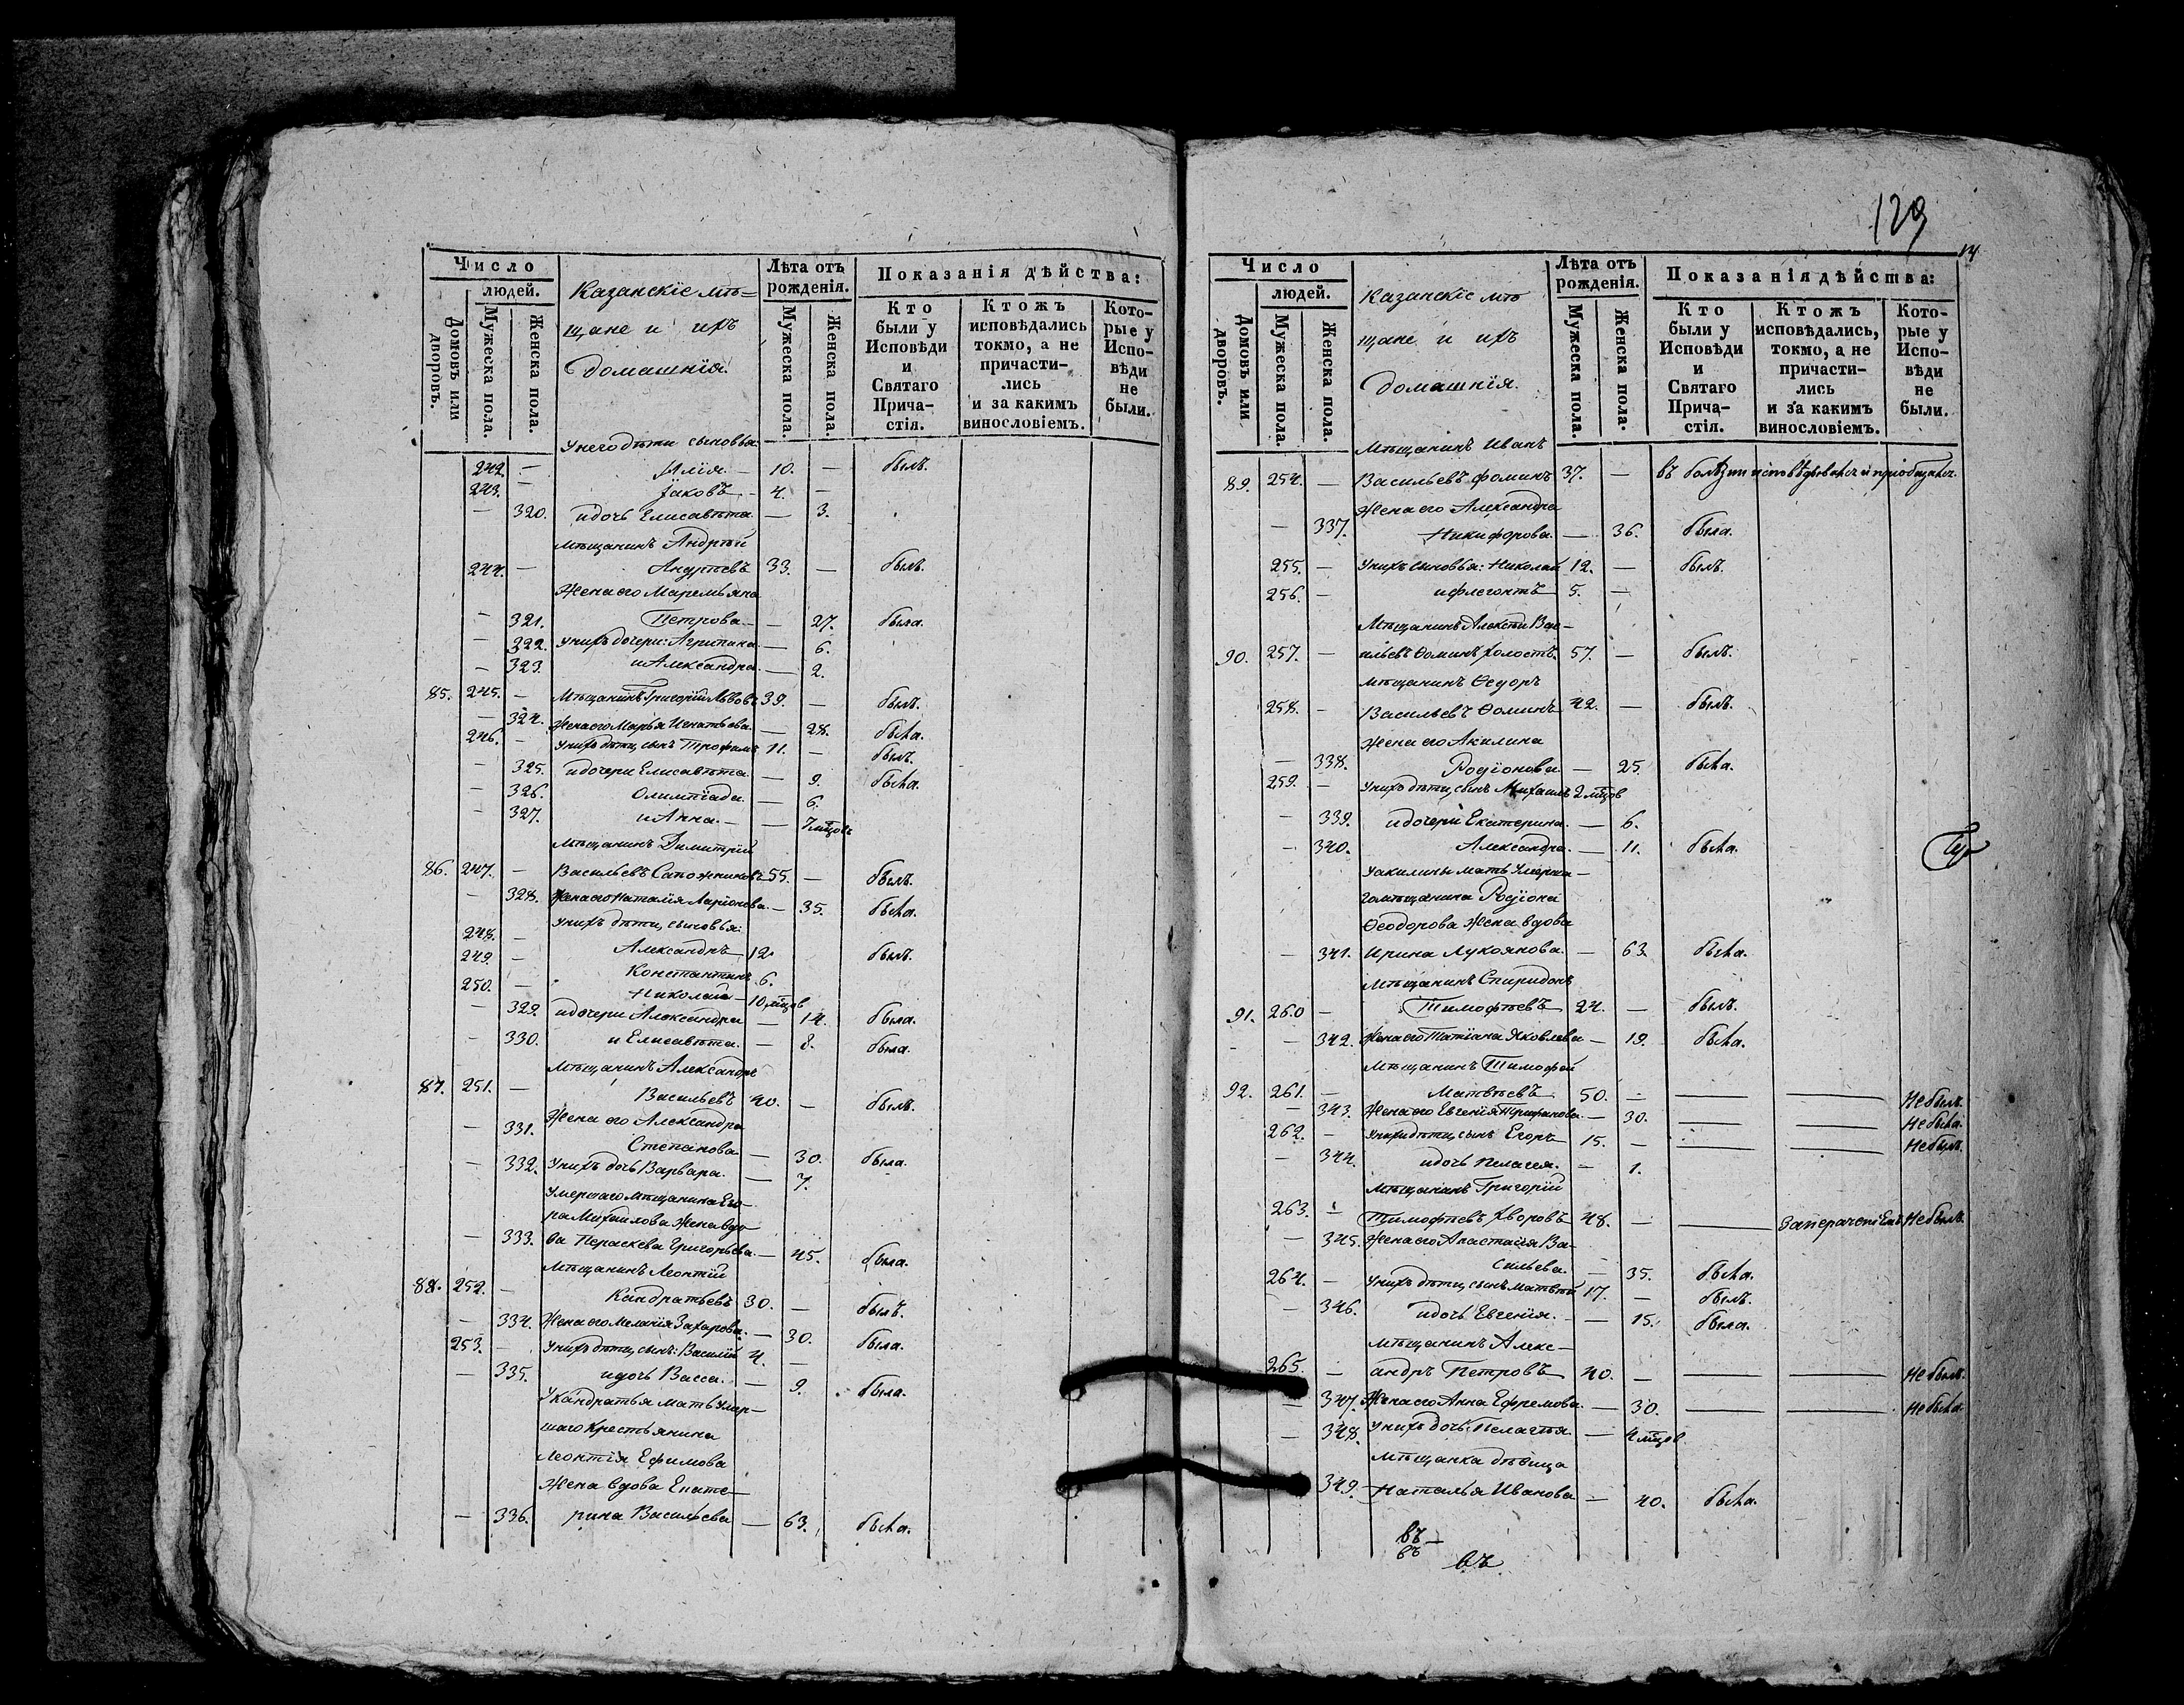 129
14
Число
людей.
Домовъ или дворовъ.
Мужеска пола.
Женска пола.
Казанскіе мѣ=
щане и ихъ
домашнія.
Лѣта отъ рожденія.
Мужеска пола.
Женска пола.
Показанія дѣйства:
Кто были у Исповѣди и Святаго Прича-стія.
Ктожъ исповѣдались токмо, а не причасти-лись и за какимъ винословіемъ.
Кото-рые у Испо-вѣди не были.
У него дѣти сыновья
242. — Илія. — 10. — былъ.
243. — Іаковъ. — 4. —
— 320. и дочь Елисавѣта — 3.
Мѣщанинъ Андрей
244. — Андреевъ 33. — былъ.
Жена его Маремьяна
— 321. Петрова. — 27. была.
— 322. У нихъ дочери: Агрипина — 6.
— 323. и Александра. — 2.
85. 245. — Мѣщанинъ Григорій Львовъ 39. — былъ.
— 324. Жена его Марья Игнатьева. — 28. была.
246. — У нихъ дѣти, сынъ Трофимъ 11. — былъ.
— 325. и дочери Елисавѣта — 9. была.
— 326. Олимпіада. — 6.
— 327. и Анна. — 7 мѣцовъ
Мѣщанинъ Димитрій
86. 247. — Васильевъ Сапожниковъ 55. — былъ.
— 328. Жена его Наталія Ларіонова. — 35. была.
У нихъ дѣти, сыновья:
248. — Александръ 12. былъ.
249. — Константинъ 6.
250. — Николай — 10 мѣцов
— 329. и дочери Александра — 14. была.
— 330. и Елисавѣта. — 8. была.
Мѣщанинъ Александръ
87. 251. — Васильевъ 40. — былъ.
Жена его Александра
— 331. Степанова — 30. была.
— 332. У нихъ дочь Варвара. — 7.
Умершаго мѣщанина Его-
ра Михаилова жена вдо-
— 333. ва Пераскева Григорьева. — 45. была.
Мѣщанинъ Леонтій
88. 252. — Кандратьевъ 30. — былъ.
— 334. Жена его Меланія Захарова. — 30. была.
253. — У нихъ дѣти, сынъ: Василій 4. —
— 335. и дочь Васса. — 9. была.
У Кандратья мать умер-
шаго крестьянина
Леонтія Ефимова
жена вдова Екате-
— 336. рина Васильева — 63. была.
Число
людей.
Домовъ или дворовъ.
Мужеска пола.
Женска пола.
Казанскіе мѣ
щане и ихъ
домашнія.
Лѣта отъ рожденія.
Мужеска пола.
Женска пола.
Показанія дѣйства:
Кто были у Исповѣди и Святаго Прича-стія.
Ктожъ исповѣдались, токмо, а не причасти-лись и за какимъ винословіемъ.
Кото-рые у Испо-вѣди не были.
Мѣщанинъ Иванъ
89. 254. — Васильевъ Фоминъ 37. — въ болѣзни исповѣдывался и пріобщался.
Жена его Александра
— 337. Никифорова. — 36. была.
255. — У нихъ сыновья: Николай 12. — былъ.
256. — и Флегонтъ 5. —
Мѣщанинъ Алексѣй Вас-
90. 257. — ильевъ Ѳоминъ холостъ. 57. — былъ.
Мѣщанинъ Ѳедоръ
258. — Васильевъ Ѳоминъ 42. — былъ.
Жена его Акилина
— 338. Родіонова. — 25. была.
259. — У нихъ дѣти, сынъ Михаилъ 2 мѣцов
— 339. и дочери Екатерина. — 6.
— 340. Александра. — 11. была.
У Акилины мать умерша-
го мѣщанина Родіона
Ѳеодорова жена вдова
— 341. Ирина Лукоянова. — 63. была.
Мѣщанинъ Спиридонъ
91. 260 — Тимофѣевъ 24. — былъ.
— 342. Жена его Татіана Яковлева — 19. была.
Мѣщанинъ Тимофей
92. 261. — Матвѣевъ 50. — — — Не былъ.
— 343. Жена его Евгенія — 30. — — Не была.
262. — У нихъ дѣти, сынъ Егоръ 15. — — — Не былъ.
— 344. и дочь Пелагея. — 1.
Мѣщанинъ Григорій
263. — Тимофѣевъ Хворовъ 48. — — Не былъ.
— 345. Жена его Анастасія Ва-
сильева. — 35. была.
264. — У нихъ дѣти, сынъ Матвѣй 17. — былъ.
— 346. и дочь Евгенія. — 15. была.
Мѣщанинъ Алекс-
265. — андръ Петровъ 40. — — — Не былъ.
— 347. Жена его Анна Ефремова. — 30. — — Не была
— 348. У нихъ дочь: Пелагѣя. — 4 мѣцов.
Мѣщанка дѣвица
349. Наталья Иванова — 40. была.
въ —
въ
въ